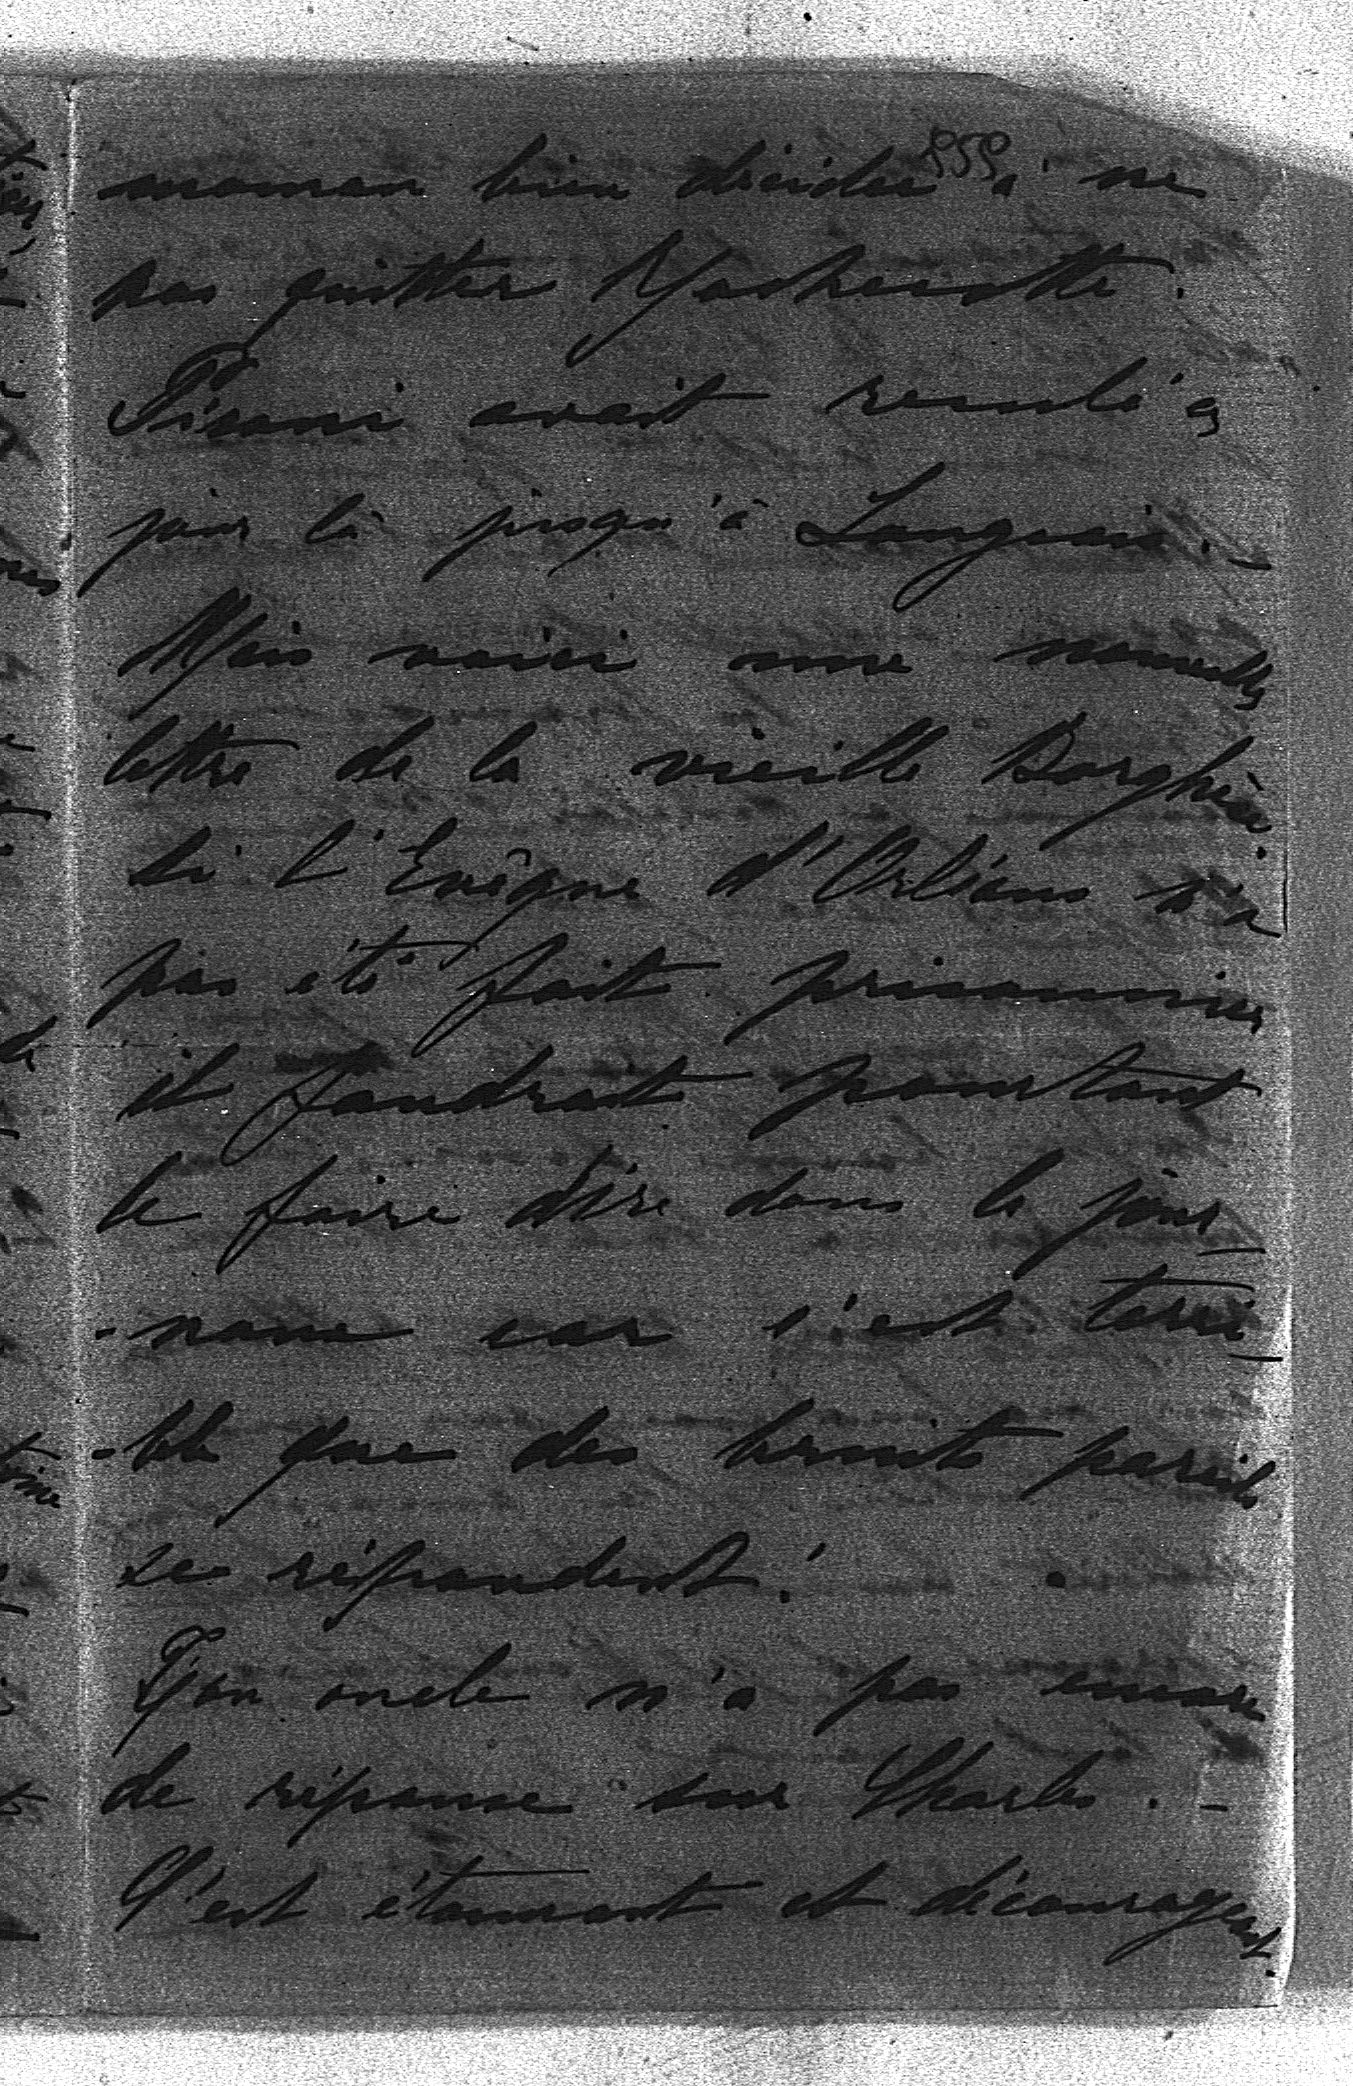 859
maman bien décidée à ne
pas quitter Rochecotte.
avait reculé ce
jour là jusqu'à Langeais. _
Mais voici une nouvelle
lettre de la vieille Borghèse.
Si l'Evêque d'Orléans n'a
pas été fait prisonnier
il faudrait pourtant
le faire dire dans les jour_
-naux car c'est terri_
-ble que des bruits pareils
se répandent!
Ton oncle n'a pas encore
de réponse sur Charles. _
C'est étonnant et décourageant.